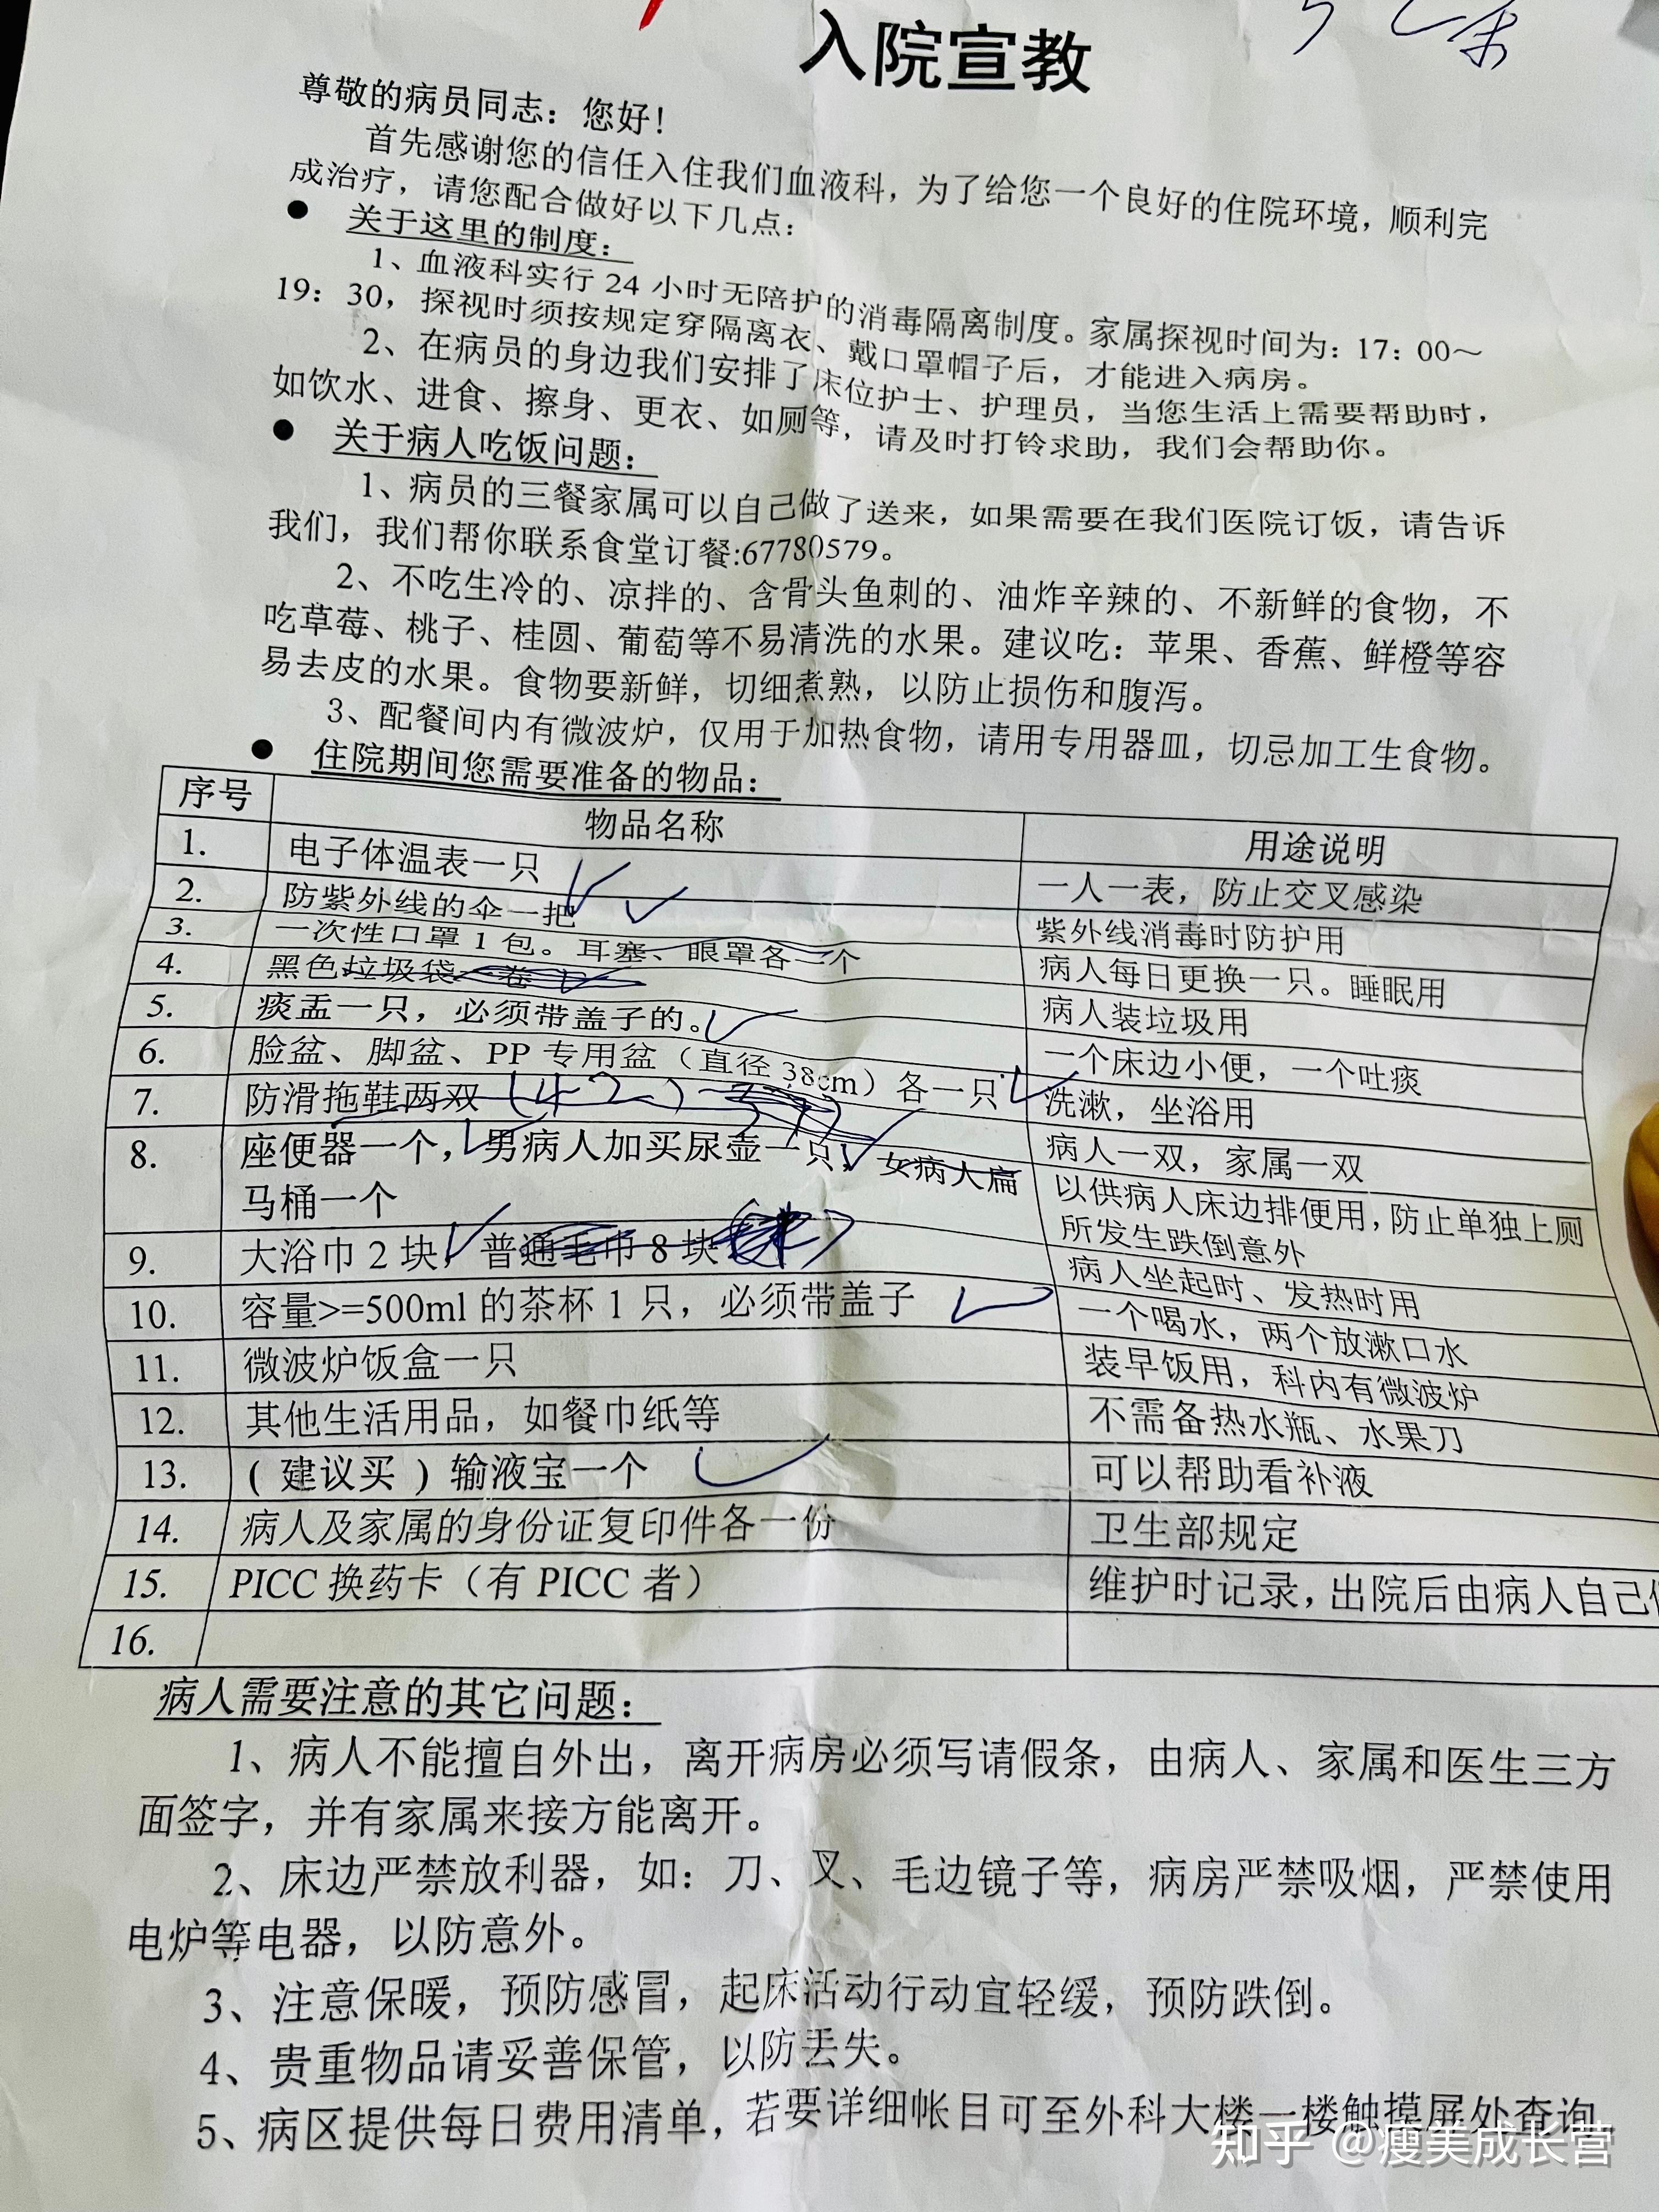 入院宣教
尊敬的病员同志：您好！
首先感谢您的信任入住我们血液科，为了给您一个良好的住院环境，顺利完
成治疗，请您配合做好以下几点：
● 关于这里的制度：
1、血液科实行 24 小时无陪护的消毒隔离制度。家属探视时间为：17：00～
19：30，探视时须按规定穿隔离衣、戴口罩帽子后，才能进入病房。
2、在病员的身边我们安排了床位护士、护理员，当您生活上需要帮助时，
如饮水、进食、擦身、更衣、如厕等，请及时打铃求助，我们会帮助你。
● 关于病人吃饭问题：
1、病员的三餐家属可以自己做了送来，如果需要在我们医院订饭，请告诉
我们，我们帮你联系食堂订餐:67780579。
2、不吃生冷的、凉拌的、含骨头鱼刺的、油炸辛辣的、不新鲜的食物，不
吃草莓、桃子、桂圆、葡萄等不易清洗的水果。建议吃：苹果、香蕉、鲜橙等容
易去皮的水果。食物要新鲜，切细煮熟，以防止损伤和腹泻。
3、配餐间内有微波炉，仅用于加热食物，请用专用器皿，切忌加工生食物。
● 住院期间您需要准备的物品：
序号 物品名称 用途说明
1. 电子体温表一只 一人一表，防止交叉感染
2. 防紫外线的伞一把 紫外线消毒时防护用
3. 一次性口罩 1 包。耳塞、眼罩各一个 病人每日更换一只。睡眠用
4. 黑色垃圾袋一卷 病人装垃圾用
5. 痰盂一只，必须带盖子的。 一个床边小便，一个吐痰
6. 脸盆、脚盆、PP 专用盆（直径 38cm）各一只 洗漱，坐浴用
7. 防滑拖鞋两双 (42) 病人一双，家属一双
8. 座便器一个，男病人加买尿壶一只，女病人扁 以供病人床边排便用，防止单独上厕
马桶一个 所发生跌倒意外
9. 大浴巾 2 块，普通毛巾 8 块 病人坐起时、发热时用
10. 容量>=500ml 的茶杯 1 只，必须带盖子 一个喝水，两个放漱口水
11. 微波炉饭盒一只 装早饭用，科内有微波炉
12. 其他生活用品，如餐巾纸等 不需备热水瓶、水果刀
13. （建议买）输液宝一个 可以帮助看补液
14. 病人及家属的身份证复印件各一份 卫生部规定
15. PICC 换药卡（有 PICC 者） 维护时记录，出院后由病人自己
16.
病人需要注意的其它问题：
1、病人不能擅自外出，离开病房必须写请假条，由病人、家属和医生三方
面签字，并有家属来接方能离开。
2、床边严禁放利器，如：刀、叉、毛边镜子等，病房严禁吸烟，严禁使用
电炉等电器，以防意外。
3、注意保暖，预防感冒，起床活动行动宜轻缓，预防跌倒。
4、贵重物品请妥善保管，以防丢失。
5、病区提供每日费用清单，若要详细帐目可至外科大楼一楼触摸屏处查询
知乎 @瘦美成长营